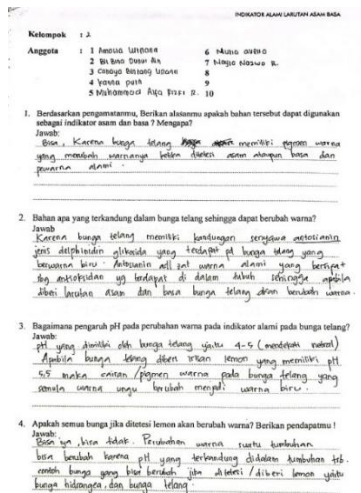 INDIKATOR ALAMI LARUTAN ASAM BASA
Kelompok : 2
Anggota : 1 Amelia
6 
2 
7 Nagio Naswa R.
3 Cahaya Bintang
8
4 putri
9
5 Muhammad Arya Rizki R.
10
1. Berdasarkan pengamatanmu, Berikan alasanmu apakah bahan tersebut dapat digunakan
sebagai indikator asam dan basa ? Mengapa?
Jawab:
Bisa, Karena bunga telang memiliki pigmen warna
yang merubah warnanya ketika diteteri asam ataupun basa dan
pewarna alami.
2. Bahan apa yang terkandung dalam bunga telang sehingga dapat berubah warna?
Jawab
Karena bunga telang memiliki kandungan senyawa antosianin
jenis delphinidin glikosida yang terdapat pd bunga telang yang
berwarna biru. Antosianin adl zat warna alami yang bersifat
sbg antioksidan yg terdapat di dalam tubuh sehingga apabila
diberi larutan asam dan basa bunga telang akan berubah warna.
3. Bagaimana pengaruh pH pada perubahan warna pada indikator alami pada bunga telang?
Jawab:
pH yang dimiliki oleh bunga telang yaitu 4-5 (mendekati netral)
Apabila bunga telang diberi irisan lemon yang memiliki pH
5,5 maka /pigmen warna pada bunga telang yang
semula warna ungu berubah menjadi warna biru.
4. Apakah semua bunga jika ditetesi lemon akan berubah warna? Berikan pendapatmu !
Jawab:
Bisa iya, bisa tidak. Perubahan warna suatu tumbuhan
bisa berubah karena pH yang terkandung didalam tumbuhan tsb.
contoh bunga yang bisa berubah jika ditetesi / diberi lemon yaitu
bunga hidrangea, dan bunga telang.